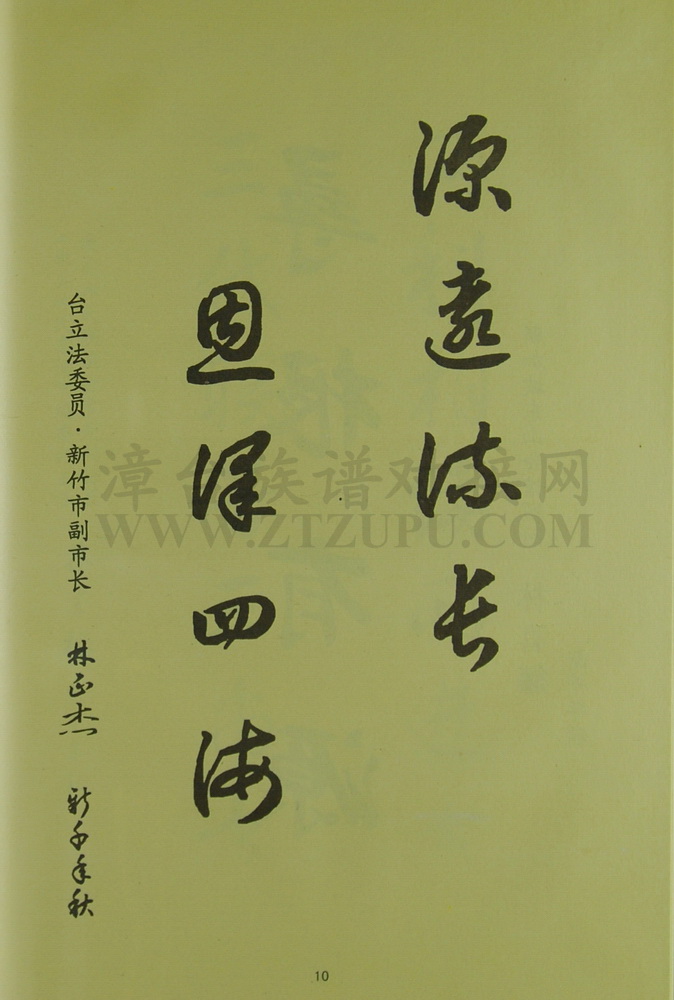 源遠流长
恩澤四海
台立法委员·新竹市副市长 林正杰 新千年秋
漳台族谱对接网
WWW.ZTZUPU.COM
10